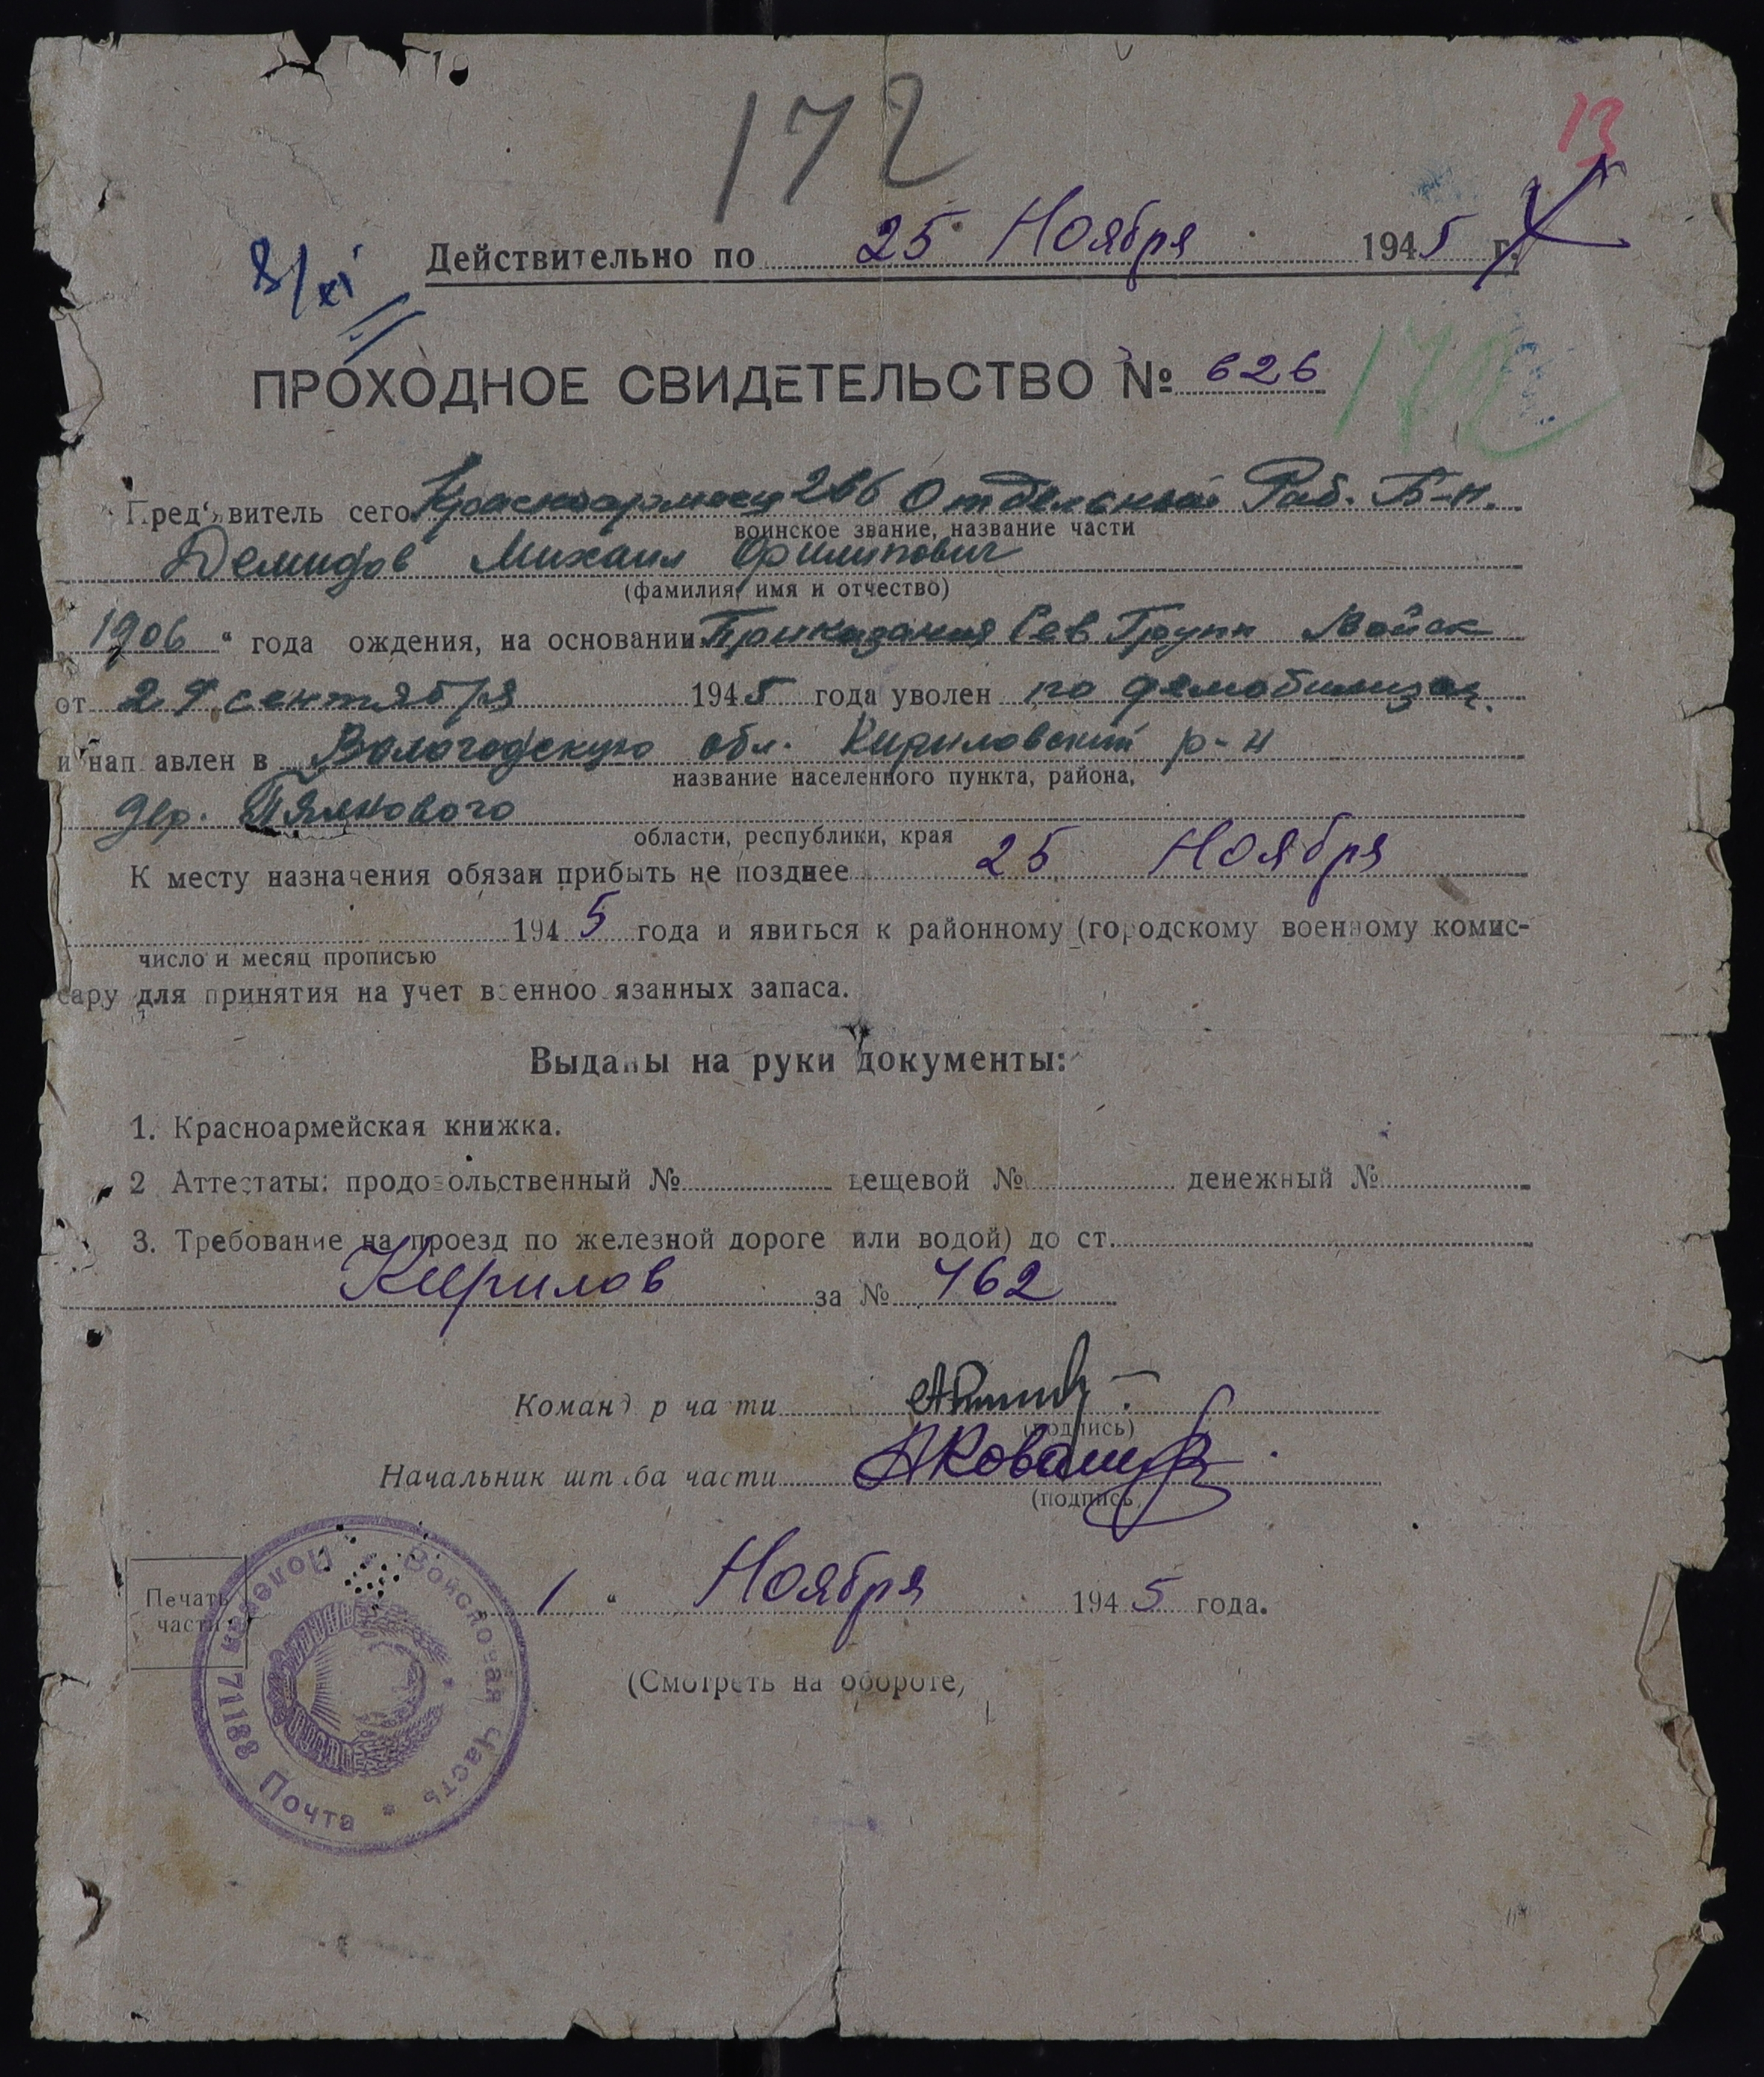 172
13
8/XI
Действительно по 25 Ноября 1945 г.
ПРОХОДНОЕ СВИДЕТЕЛЬСТВО № 626
172
Пред'явитель сего Красноармеец 266 Отдельный Раб. Б-н.
воинское звание, название части
Демидов Михаил Филипович
(фамилия, имя и отчество)
„1906“ года ождения, на основании Приказания Сев Групп Войск
от 29 сентября 1945 года уволен по демобилизац.
и нап авлен в Вологодскую обл. Кириловский р-н
название населенного пункта, района,
дер.
области, республики, края
К месту назначения обязан прибыть не позднее 25 Ноября
1945 года и явиться к районному (городскому военному комис-
число и месяц прописью
сару для принятия на учет военноо язанных запаса.
Выданы на руки документы:
1. Красноармейская книжка.
2 Аттестаты: продовольственный № вещевой № денежный №
3. Требование на проезд по железной дороге или водой) до ст.
Кирилов за № 762
Команд р ча ти
(подпись)
Начальник шт ба части АКовалев
(подпись,
Печать
части
1 " Ноября 1945 года.
Войсковая Часть * Полевая Почта 71188 *
(Смотреть на обороте,